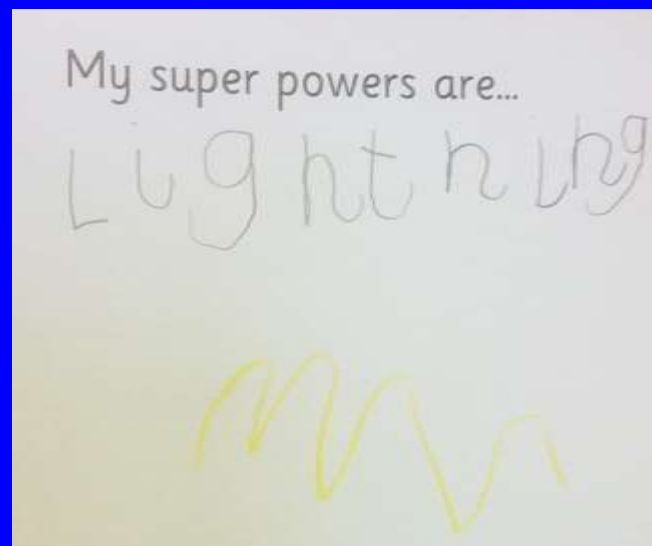 My super powers are...
Lightning